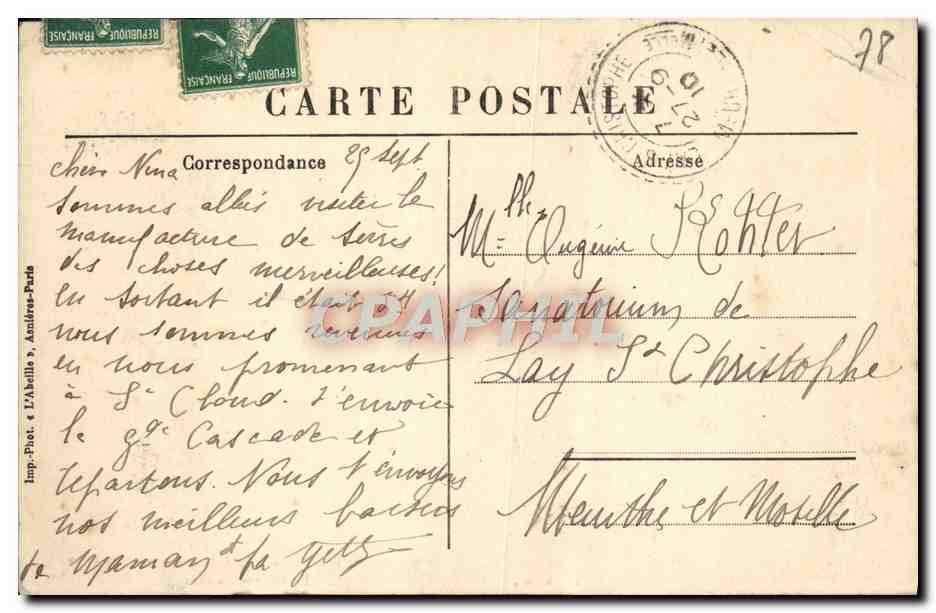 78
RÉPUBLIQUE FRANÇAISE
RÉPUBLIQUE FRANÇAISE
CARTE POSTALE
Correspondance
Adresse
Imp.-Phot. « L'Abeille », Asnières-Paris
25 Sept.
Chère Nina
Sommes allés visiter la
manufacture de Sèvres
des choses merveilleuses!
En sortant il était
nous sommes revenus
en nous promenant
à St Cloud. T'envoie
la gde Cascade et
repartons. Nous t'envoyons
nos meilleurs baisers
ta Maman et
Mlle Eugénie Kohler
Sanatorium de
Lay St Christophe
Meurthe et Moselle
CPAPHIL